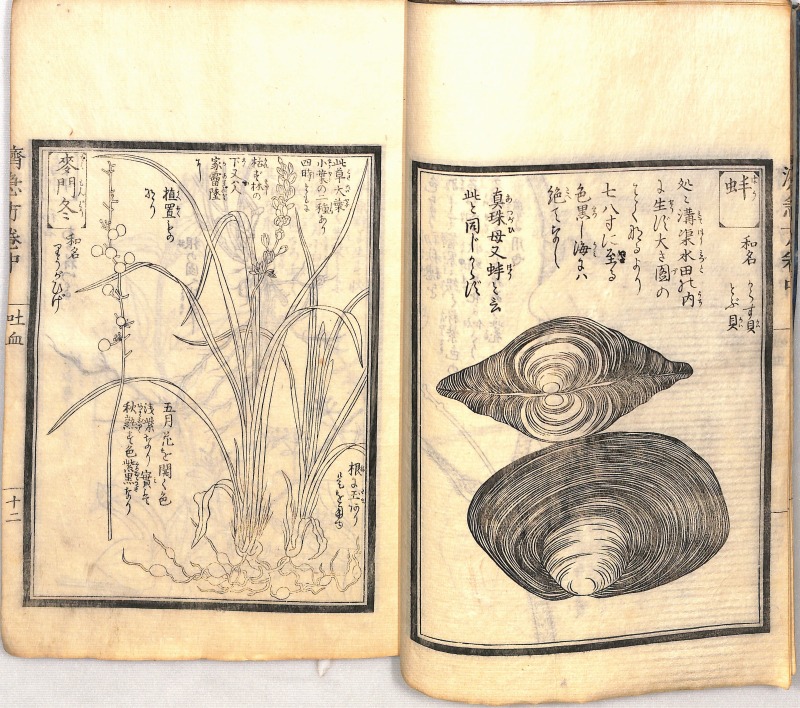 蚌
和名 からす貝
どぶ貝
処々溝渠水田の内
に生ず大さ図の
ごとくなるより
七八寸に至る
色黒し海には
絶てなし
真珠母又蚌と云
此と同じからず
麥門冬
和名
りうのひげ
植置もの
なり
此草大葉
小葉の二種あり
四時ともに
枯ず林の
下又人
家雷陸
に
五月花を開く色
浅紫なり實は
秋熟す色紫黒なり
根に玉あり
是を用ゆ
濟急方卷中
吐血
十二